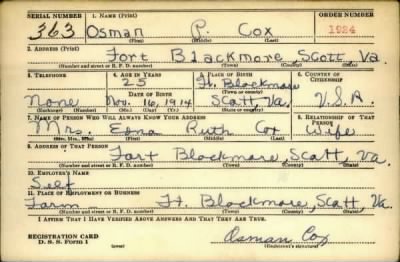 SERIAL NUMBER 1. NAME (Print) ORDER NUMBER
363 Osman P. Cox 1924
(First) (Middle) (Last)
2. ADDRESS (Print)
Fort Blackmore, Scott Va.
(Number and street or R. F. D. number) (Town) (County) (State)
3. TELEPHONE 4. AGE IN YEARS 5. PLACE OF BIRTH 6. COUNTRY OF CITIZENSHIP
25 Ft. Blackmore
(Town or county)
DATE OF BIRTH
None Nov. 16, 1914 Scott, Va. U.S.A.
7. NAME OF PERSON WHO WILL ALWAYS KNOW YOUR ADDRESS 8. RELATIONSHIP OF THAT PERSON
Mrs. Edna Ruth Cox Wife
(Mr., Mrs., Miss) (First) (Middle) (Last)
9. ADDRESS OF THAT PERSON
Fort Blackmore, Scott, Va.
(Number and street or R. F. D. number) (Town) (County) (State)
10. EMPLOYER'S NAME
Self
11. PLACE OF EMPLOYMENT OR BUSINESS
Farm - Ft. Blackmore, Scott, Va.
(Number and street or R. F. D. number) (Town) (County) (State)
I AFFIRM THAT I HAVE VERIFIED ABOVE ANSWERS AND THAT THEY ARE TRUE.
REGISTRATION CARD
D. S. S. Form 1
Osman Cox
(Registrant's signature)